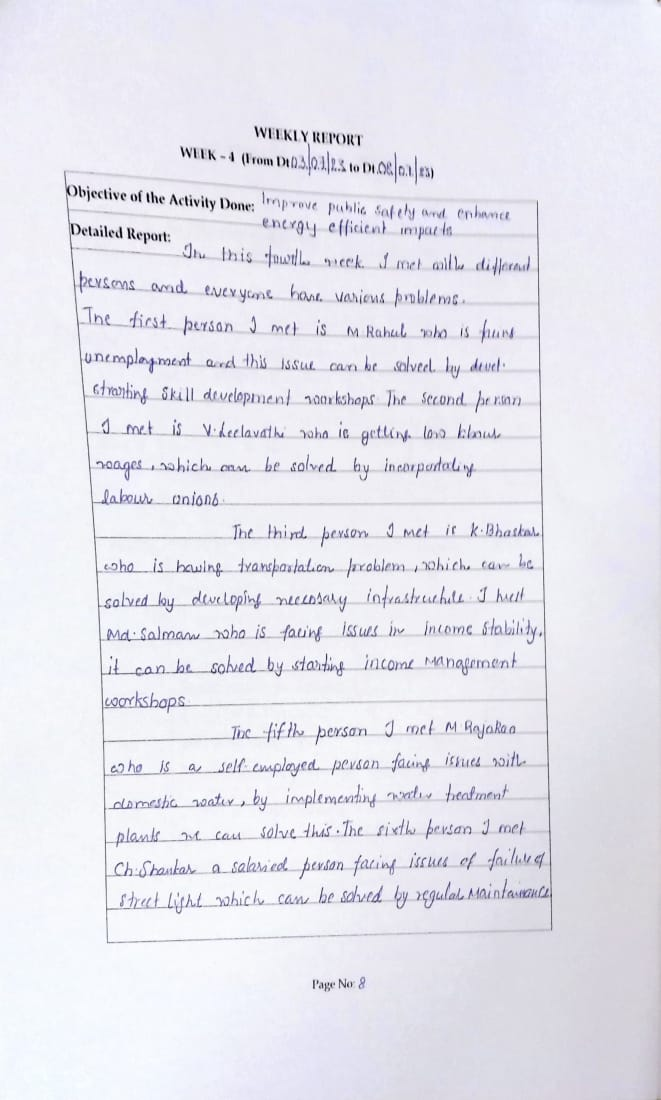 WEEKLY REPORT
WEEK - 4 (From Dt 03/01/23 to Dt. 08/01/23)
Objective of the Activity Done: Improve public safety and enhance
energy efficient impacts
Detailed Report:
In this fourth week I met with different
persons and everyone have various problems.
The first person I met is M Rahul who is
unemployment and this issue can be solved by
skill development workshops The second person
I met is V. Leelavathi who is getting low
wages, which can be solved by
labour unions.
The third person I met is K. Bhaskar
who is having transportation problem, which can be
solved by developing necessary infrastructure. I
Md. Salman who is facing issues in income stability,
it can be solved by starting income Management
workshops
The fifth person I met M RajaRao
who is a self employed person facing issues with
domestic water, by implementing water treatment
plants we can solve this. The sixth person I met
Ch. Shankar a salaried person facing issues of failure of
street light which can be solved by regular Maintainance
Page No: 8